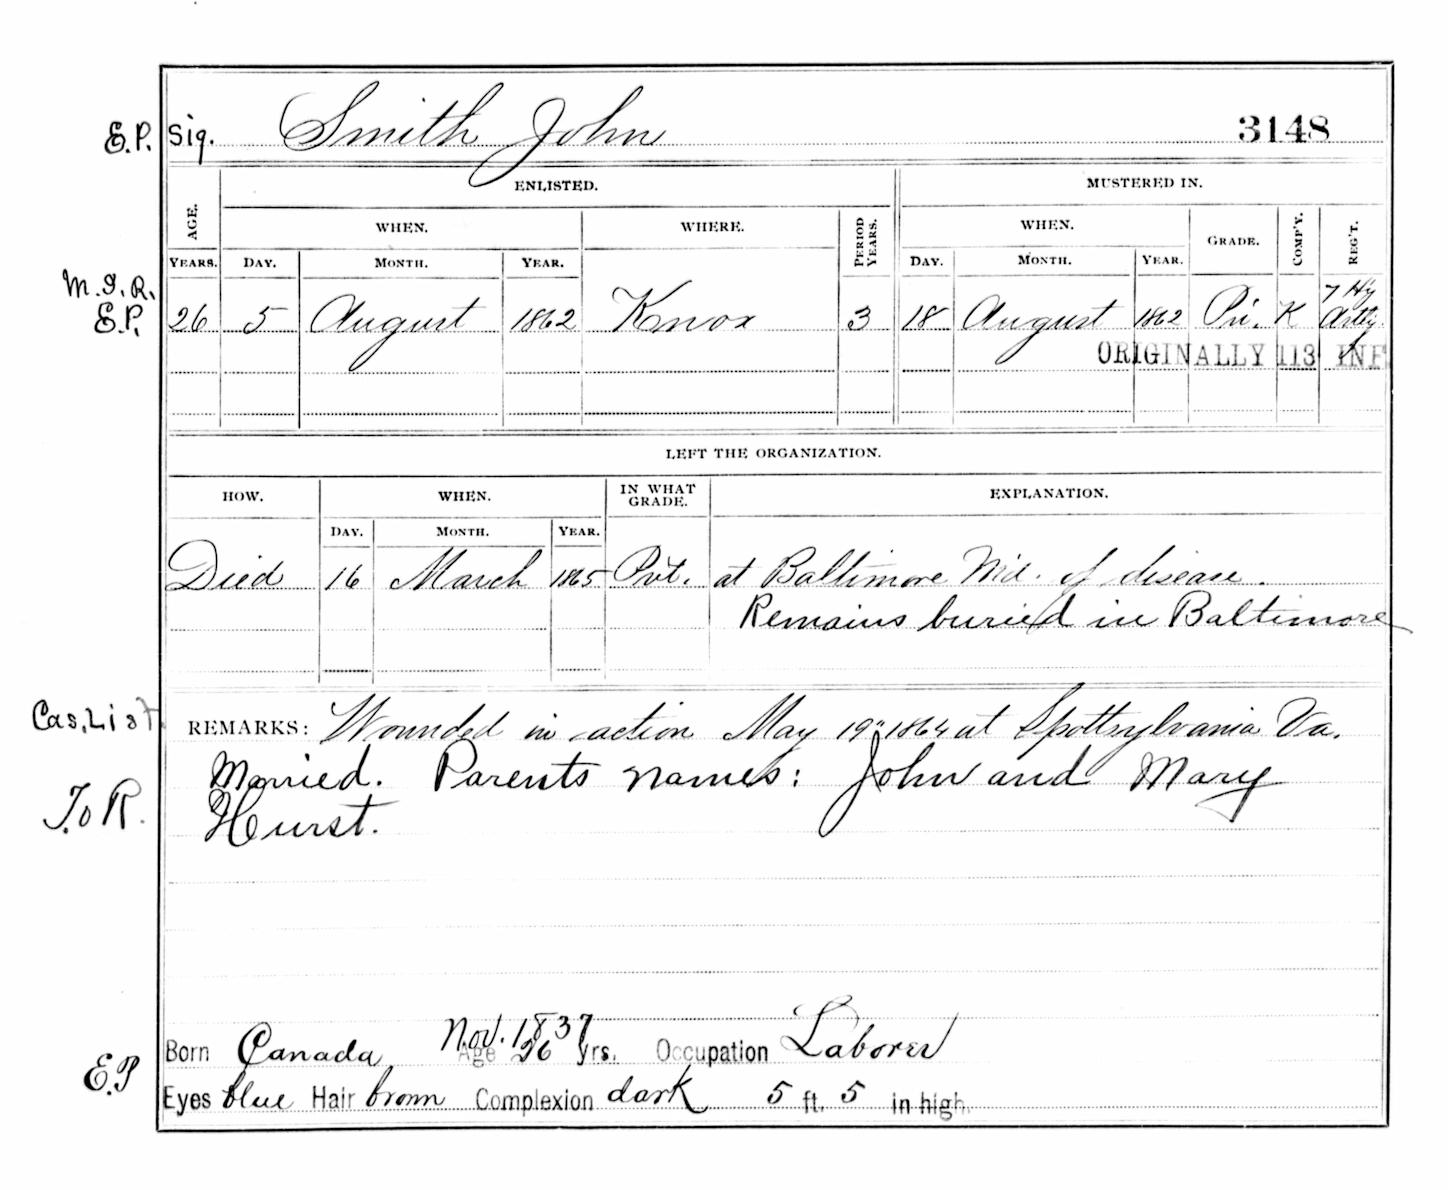 E.P. Sig. Smith John 3148
ENLISTED. MUSTERED IN.
AGE. WHEN. WHERE. PERIOD YEARS. WHEN. GRADE. COMP'Y. REG'T.
YEARS. DAY. MONTH. YEAR. DAY. MONTH. YEAR.
M.I.R. 7 Hy
E.P. 26 5 August 1862 Knox 3 18 August 1862 Pri. K Artly.
ORIGINALLY 113 INF
LEFT THE ORGANIZATION.
HOW. WHEN. IN WHAT GRADE. EXPLANATION.
DAY. MONTH. YEAR.
Died 16 March 1865 Pvt. at Baltimore Md. of disease.
Remains buried in Baltimore
Cas. List REMARKS: Wounded in action May 19" 1864 at Spottsylvania Va.
Married. Parents names: John and Mary
T.o R. Hurst.
Nov. 1837
Born Canada Age 26 yrs. Occupation Laborer
E.P Eyes blue Hair brown Complexion dark 5 ft. 5 in high.